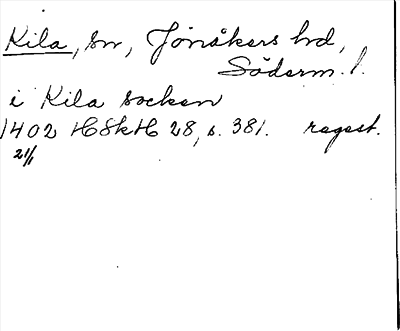 Kila, sn, Jönåkers hd,
Söderm. l.
i Kila socken
1402 HSkH 28, s. 381. regest.
21/1